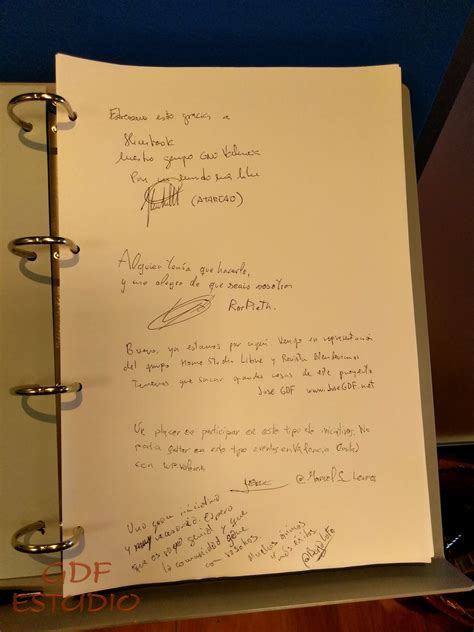 Estrenamos esto gracias a
Slimbook
Nuestro grupo GNU Valencia
Por un mundo más libre
(ATAREAO)
Alguien tenía que hacerlo,
y me alegro de que seáis vosotros
Bueno, ya estamos por aquí. Vengo en representación
del grupo Home Studio Libre y Revista
Tenemos que sacar grandes cosas de este proyecto
José GDF www.JoseGDF.net
Un placer en participar en este tipo de iniciativas, No
podía faltar en este tipo eventos en Valencia
con
Una gran iniciativa
y muy necesaria. Espero
que os vaya genial y que
la comunidad
con vosotros.
Muchos ánimos
y más éxitos
GDF
ESTUDIO